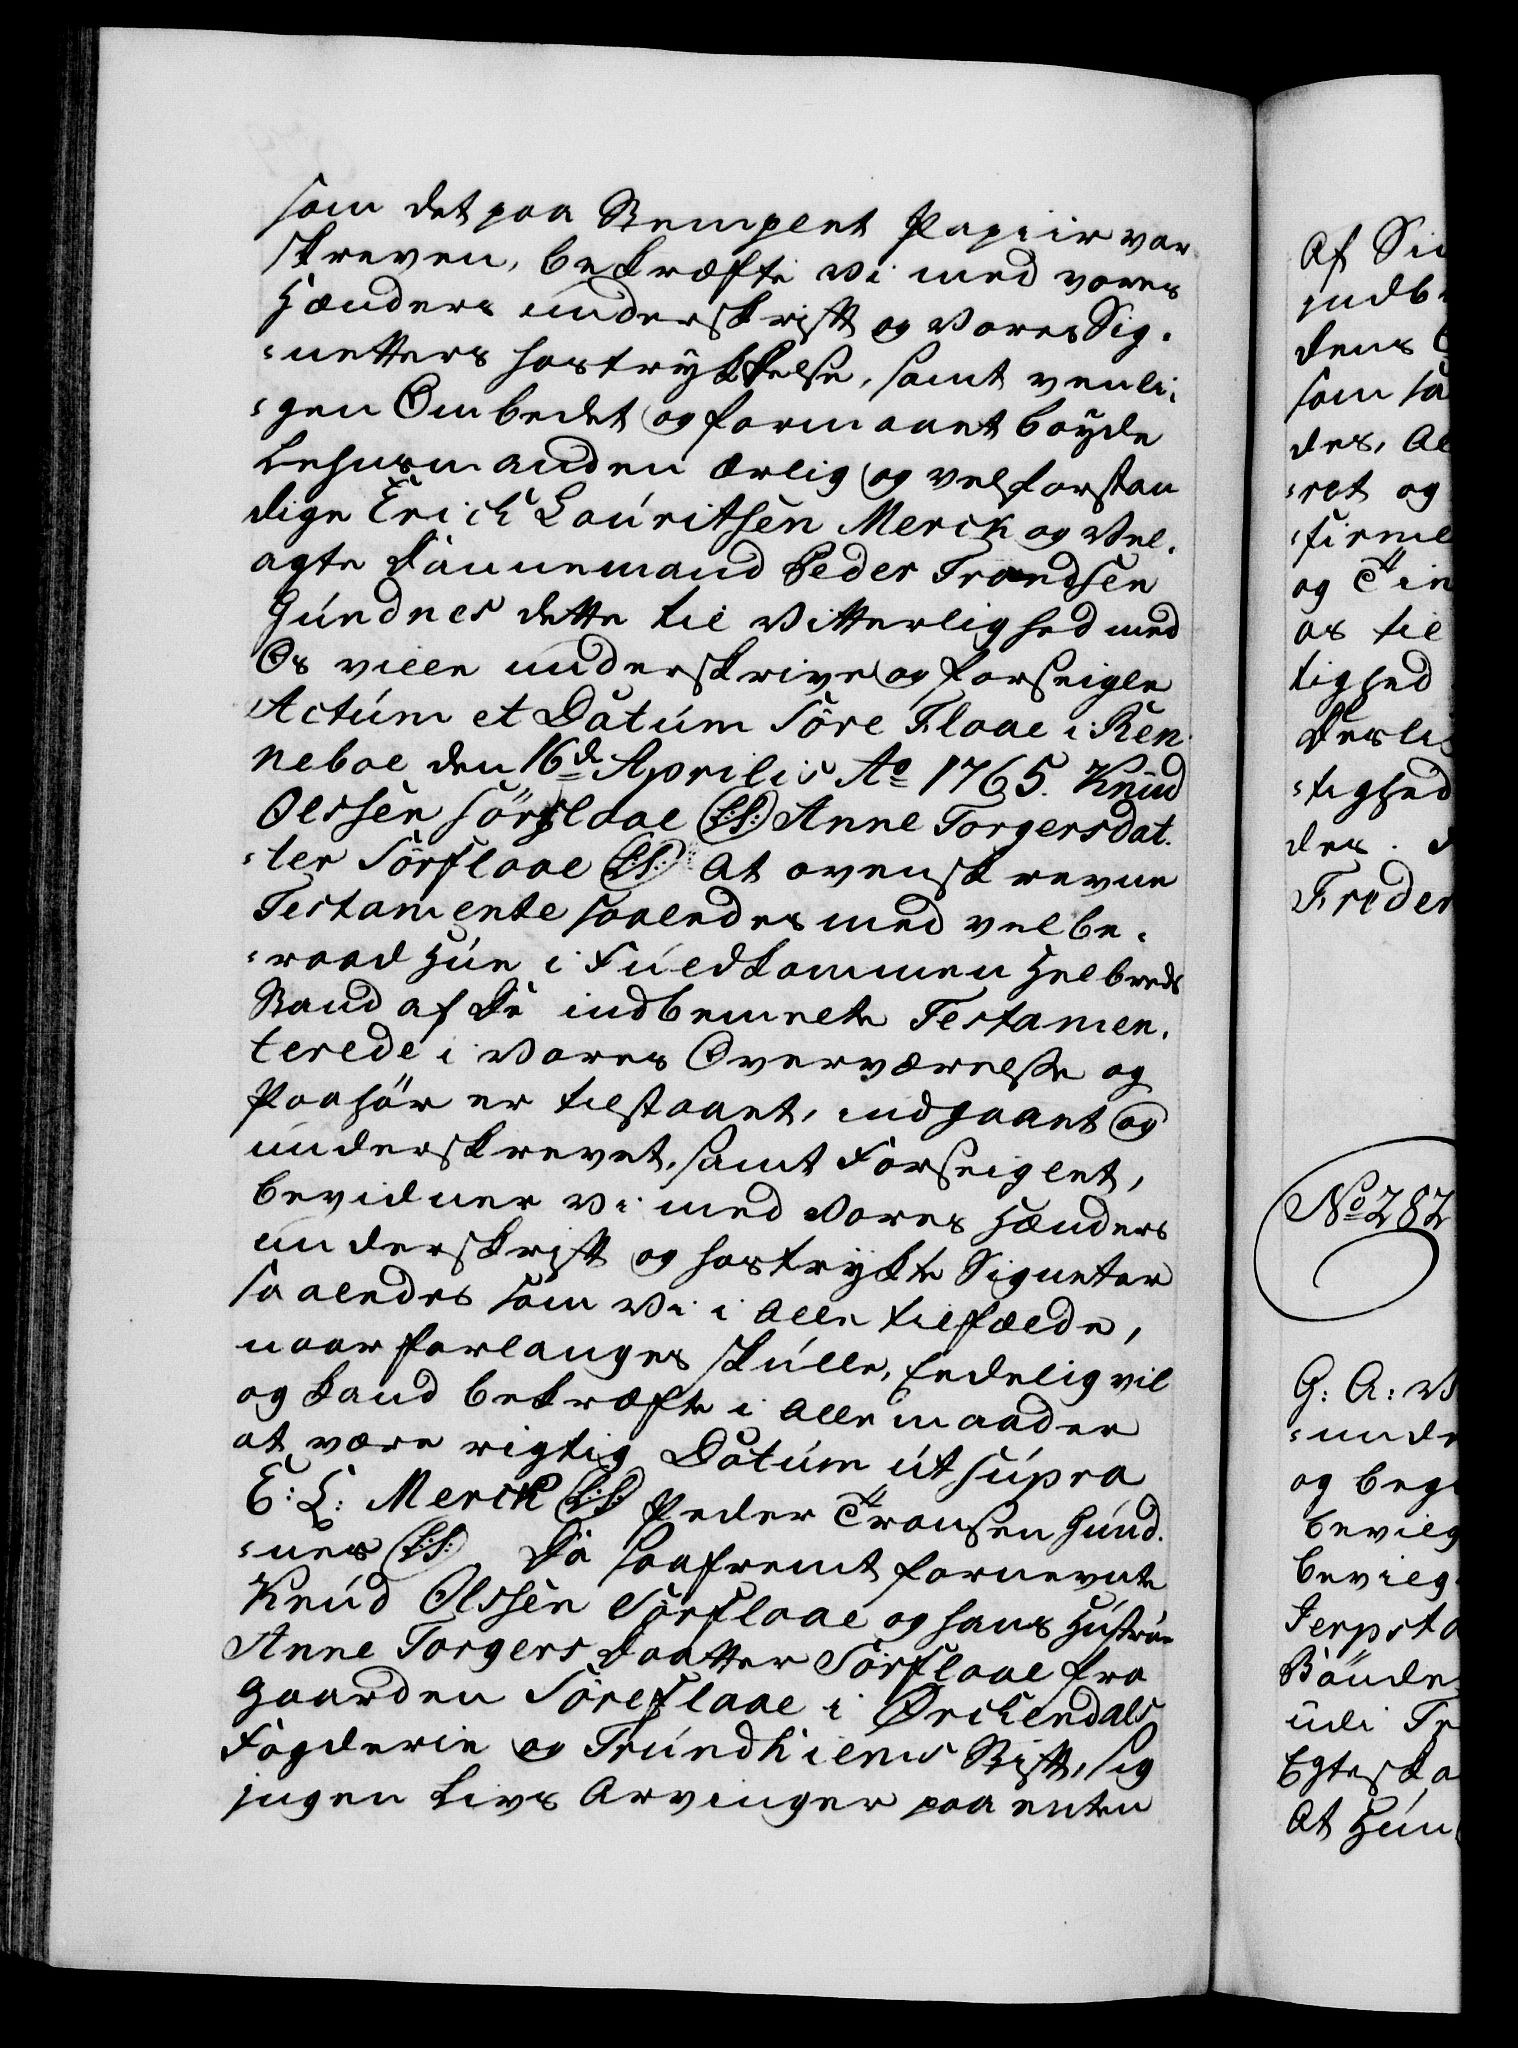 som det paa Stemplet Papiir var
skreven, bekræfte vi med vores
Hænders underskrift og vores Sig-
=netters hostrykkelse, samt venli-
=gen Ombedet og formaaet bøyde
Lehnsmanden ærlig og velforstan
dige Erich Lauritsen Merck og Vel-
agte Dannemand Peder Trondsen
Gundnes dette til Vitterlighed med
Os ville underskrive og forseigle
Actum et Datum Söre Flaae i Ren-
neboe den 16d Aprilis Ao 1765. Knud
Olssen Sörflaae (L:S:) Anne Torgersdat-
=ter Sörflaae (L:S:) At ovenskrevne
Testamente saaledes med velbe-
=raad Hue i Fuldkommen Helbreds
Stand af De indbemelte Testamen-
terede i Vores Overværelse og
Paahör er tilstaaet, indgaaet og
underskrevet, samt Forseiglet,
bevidner Vi med Vores Hænders
underskrift og hostrykte Signeter
saaledes som Vi i Alle tilfælde,
naar forlanges skulle, Eedelig vil
og kand bekræfte i Alle maader
at være rigtig Datum ut supra
E: L: Merck (L:S:) Peder Tronsen Gund-
=nes (L:S:) Da saafremt fornevnte
Knud Olssen Sörflaae og hans Hustrue
Anne Torgers Daatter Sörflaae fra
Gaarden Söreflaae i Ørchendals
Fogderie og Trundhiems Stift, sig
ingen Livs Arvinger paa enten
Af
indb
dens
som
des, Al
=ret og
og
os til
tighed
=tighed
des.
Freder
No 282
G: A: V
=unde
og beg
bevilg
bevilg
Jerpsta
Bönde
udi Tr
Egteska
At Hun